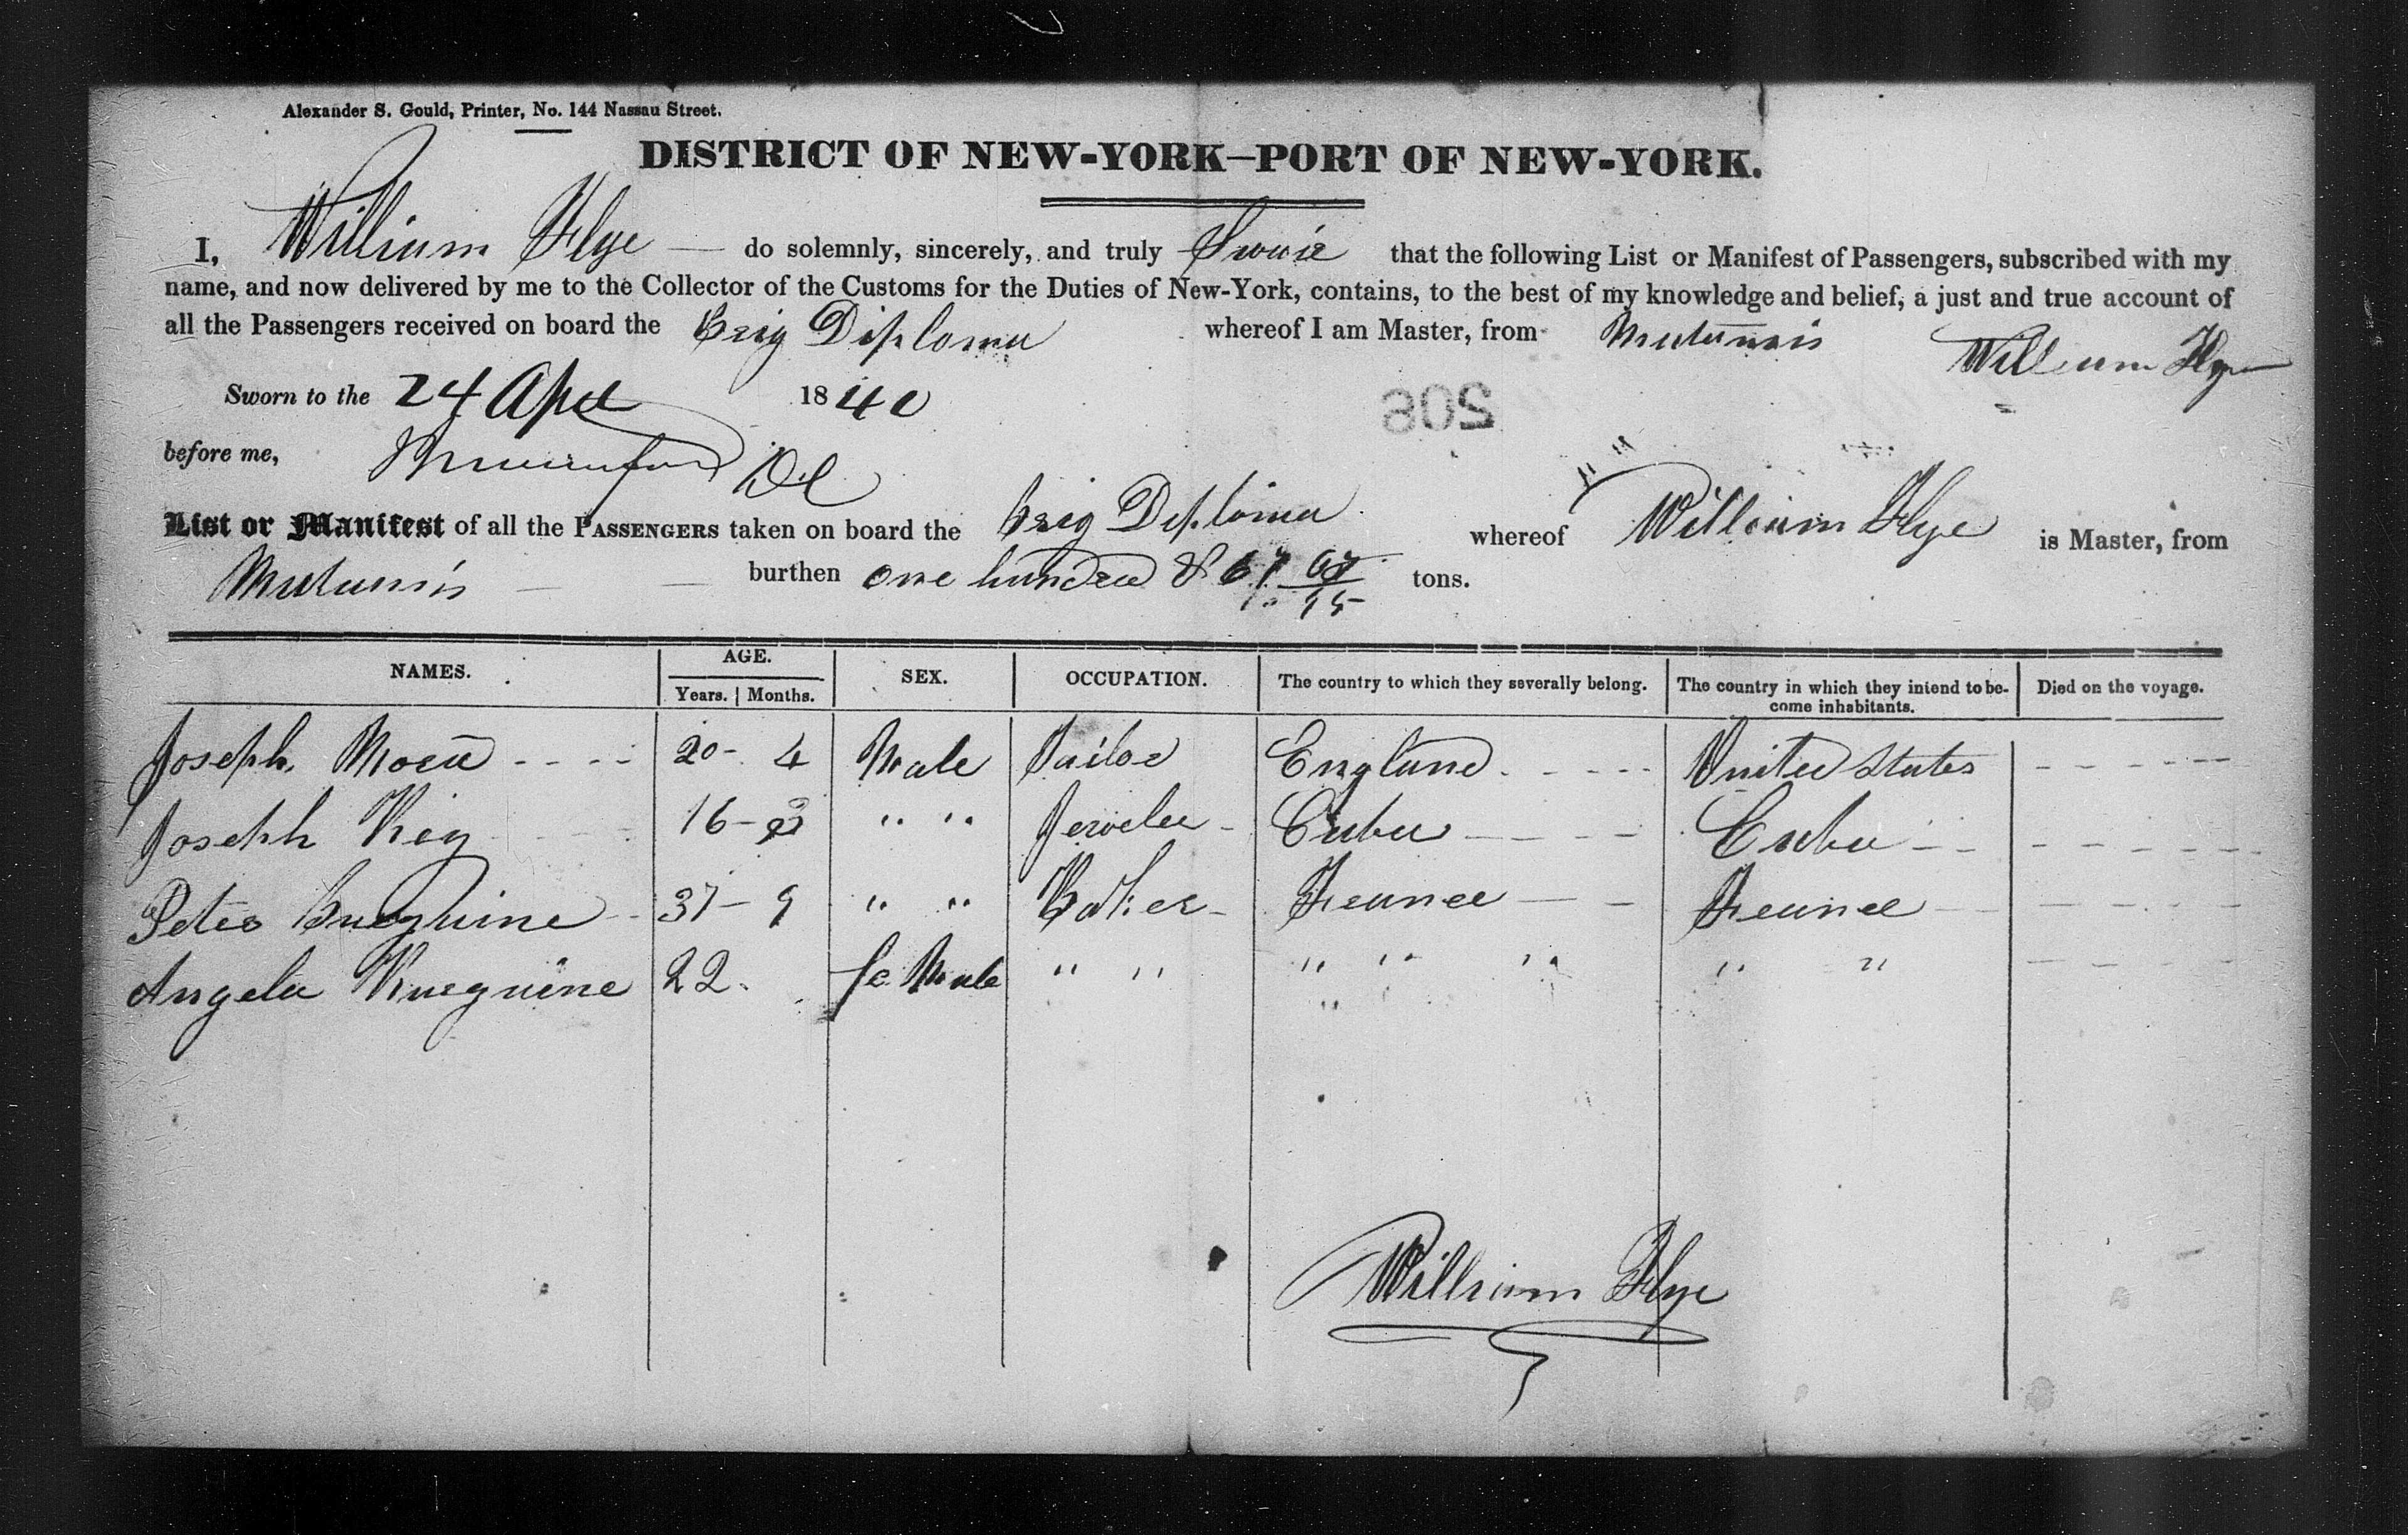 Alexander S. Gould, Printer, No. 144 Nassau Street.
DISTRICT OF NEW-YORK–PORT OF NEW-YORK.
I, William Flye — do solemnly, sincerely, and truly Swair that the following List or Manifest of Passengers, subscribed with my
name, and now delivered by me to the Collector of the Customs for the Duties of New-York, contains, to the best of my knowledge and belief, a just and true account of
all the Passengers received on board the Brig Diploma whereof I am Master, from Matanzis
William Flye
Sworn to the 24 Apl 1840
208
before me,
List or Manifest of all the PASSENGERS taken on board the Brig Diploma whereof William Flye is Master, from
Matanzis — burthen one hundred & 67 67/95 tons.
NAMES. AGE. SEX. OCCUPATION. The country to which they severally belong. The country in which they intend to be- Died on the voyage.
Years. Months. come inhabitants.
Joseph 20 - 4 Male Tailor England United States
Joseph 16 - Jeweler Cuba Cuba
Peter 37 - 9 " " Baker France France
Angela 22. fe Male " " " " " " "
William Flye